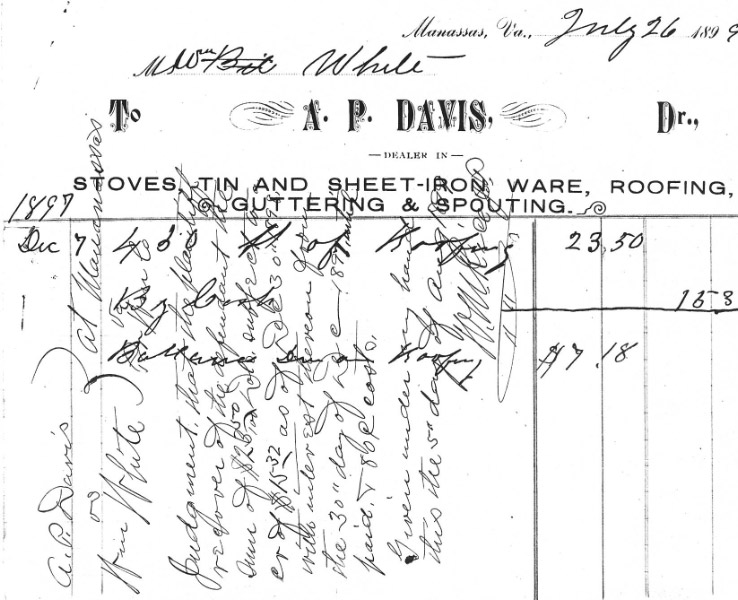 Manassas, Va., July 26 1899
M Wm Bil White
To A. P. DAVIS, Dr.,
— DEALER IN —
STOVES, TIN AND SHEET-IRON WARE, ROOFING,
GUTTERING & SPOUTING.
1897
Dec 7 Roofing 23.50
By Cash 15 3
Ballance Due on Roofing $7.18
A. P. Davis
vs
Wm White
at Manassas
Judgment, that the plaintiff
recover of the defendant the
sum of $23.50
cr of $15 32 as of
with interest thereon from
the 30" day of Dec 189
paid, & 80¢ costs.
Given under my hand
this the 5" day of August